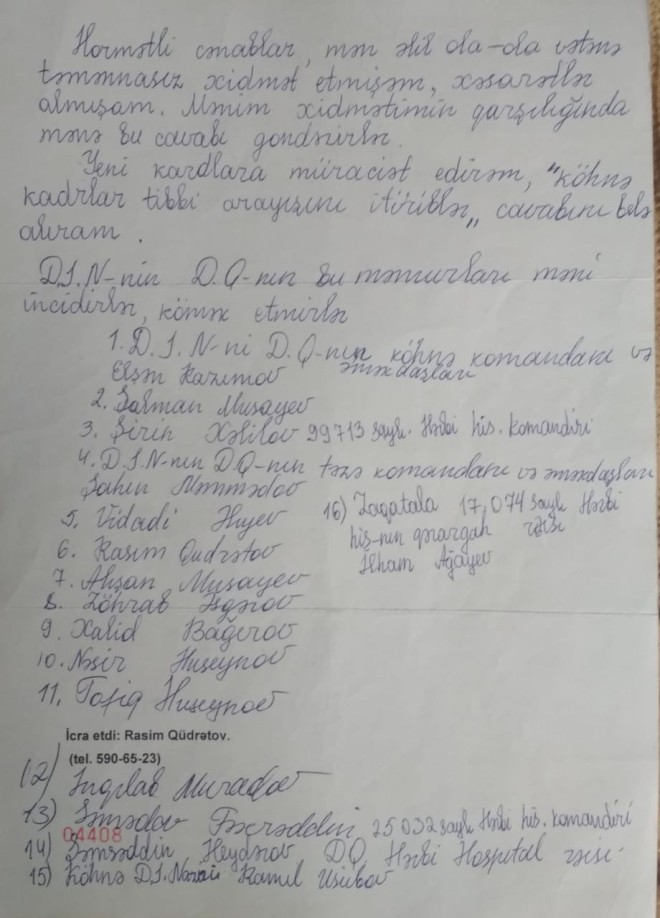 Hörmətli cənablar, mən əlil ola-ola vətənə
təmənnasız xidmət etmişəm, xəsarətlər
almışam. Mənim xidmətimin qarşılığında
mənə bu cavabı göndərirlər.
Yeni kardlara müraciət edirəm, "köhnə
kadrlar tibbi arayışını itiriblər" cavabını belə
alıram.
D.İ.N-nin D.Q-nın bu məmurları məni
incidirlər, kömək etmirlər
1. D.İ.N-ni D.Q-nın köhnə komandanı və
əməkdaşları
Elşən Kazımov
2. Salman Musayev
3. Şirin Xəlilov 99713 saylı. Hərbi his. komandiri
4. D.İ.N-nın D.Q-nın təzə komandanı və əməkdaşları
Şahin Məmmədov
5. Vidadi
6. Rasim Qudrətov
7. Ahsan Musayev
8. Zöhrab Əsgərov
9. Xalid Bağırov
10. Nəsir Huseynov
11. Tofiq Huseynov
16) Zaqatala 17,074 saylı Hərbi
his-nın qərargah rəisi
İlham Ağayev
İcra etdi: Rasim Qüdrətov.
(tel. 590-65-23)
12) İnqilab Muradov
13) Səmədov Fəxrəddin 25032 saylı Hərbi his. komandiri
04408
14) Şəmsəddin Heydərov D.Q. Hərbi Hospital rəisi
15) Köhnə D.İ. Naziri Ramil Usubov